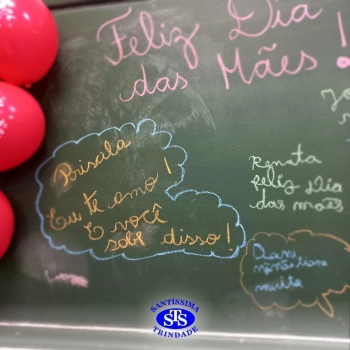 Feliz Dia
das Mães!
Prisala
Eu te amo!
E você
sabe disso!
Renata
feliz Dia
das maes
Dani
muita
SANTÍSSIMA
STS
TRINDADE